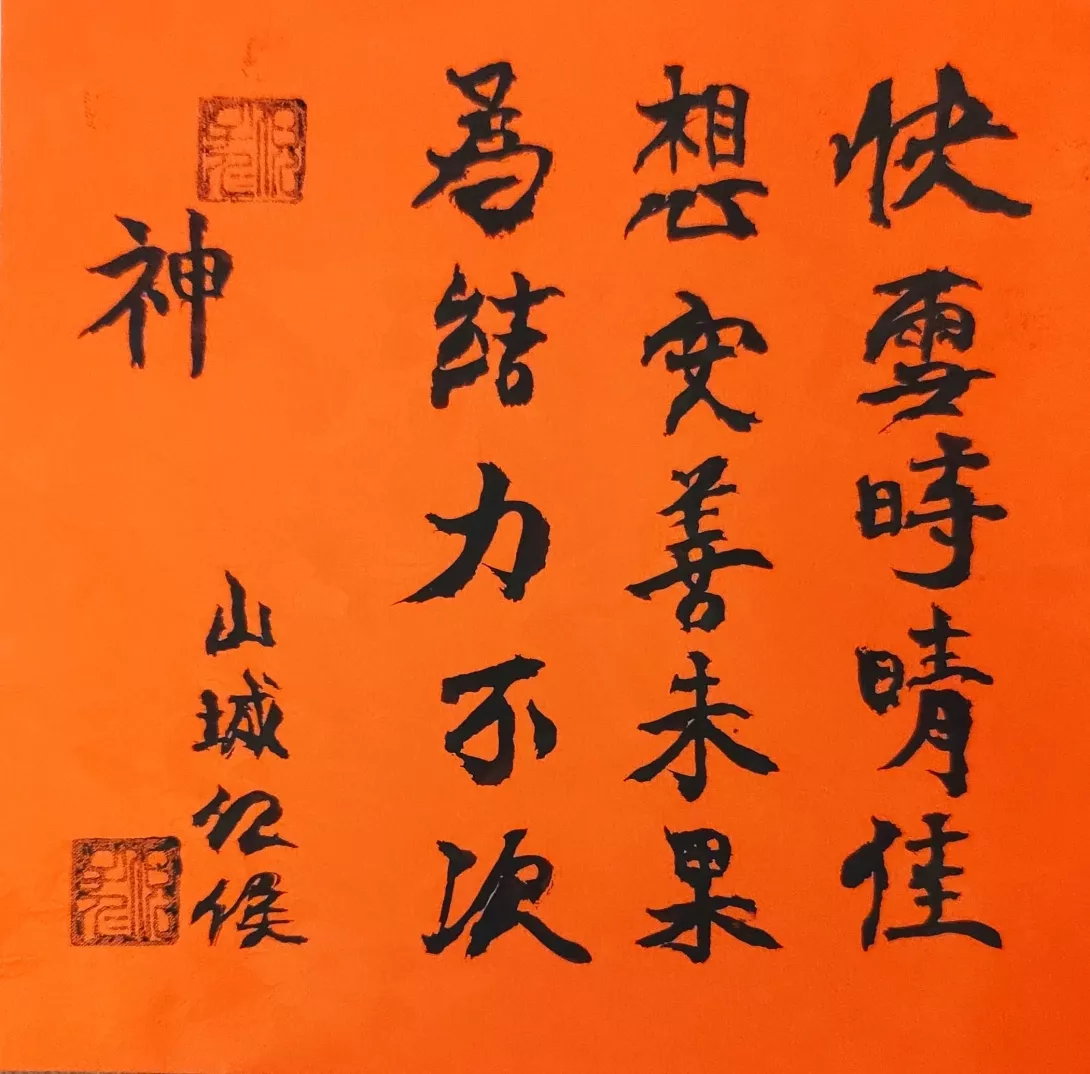 快雪時晴佳
想安善未果
為結力不次
神
山城張侯